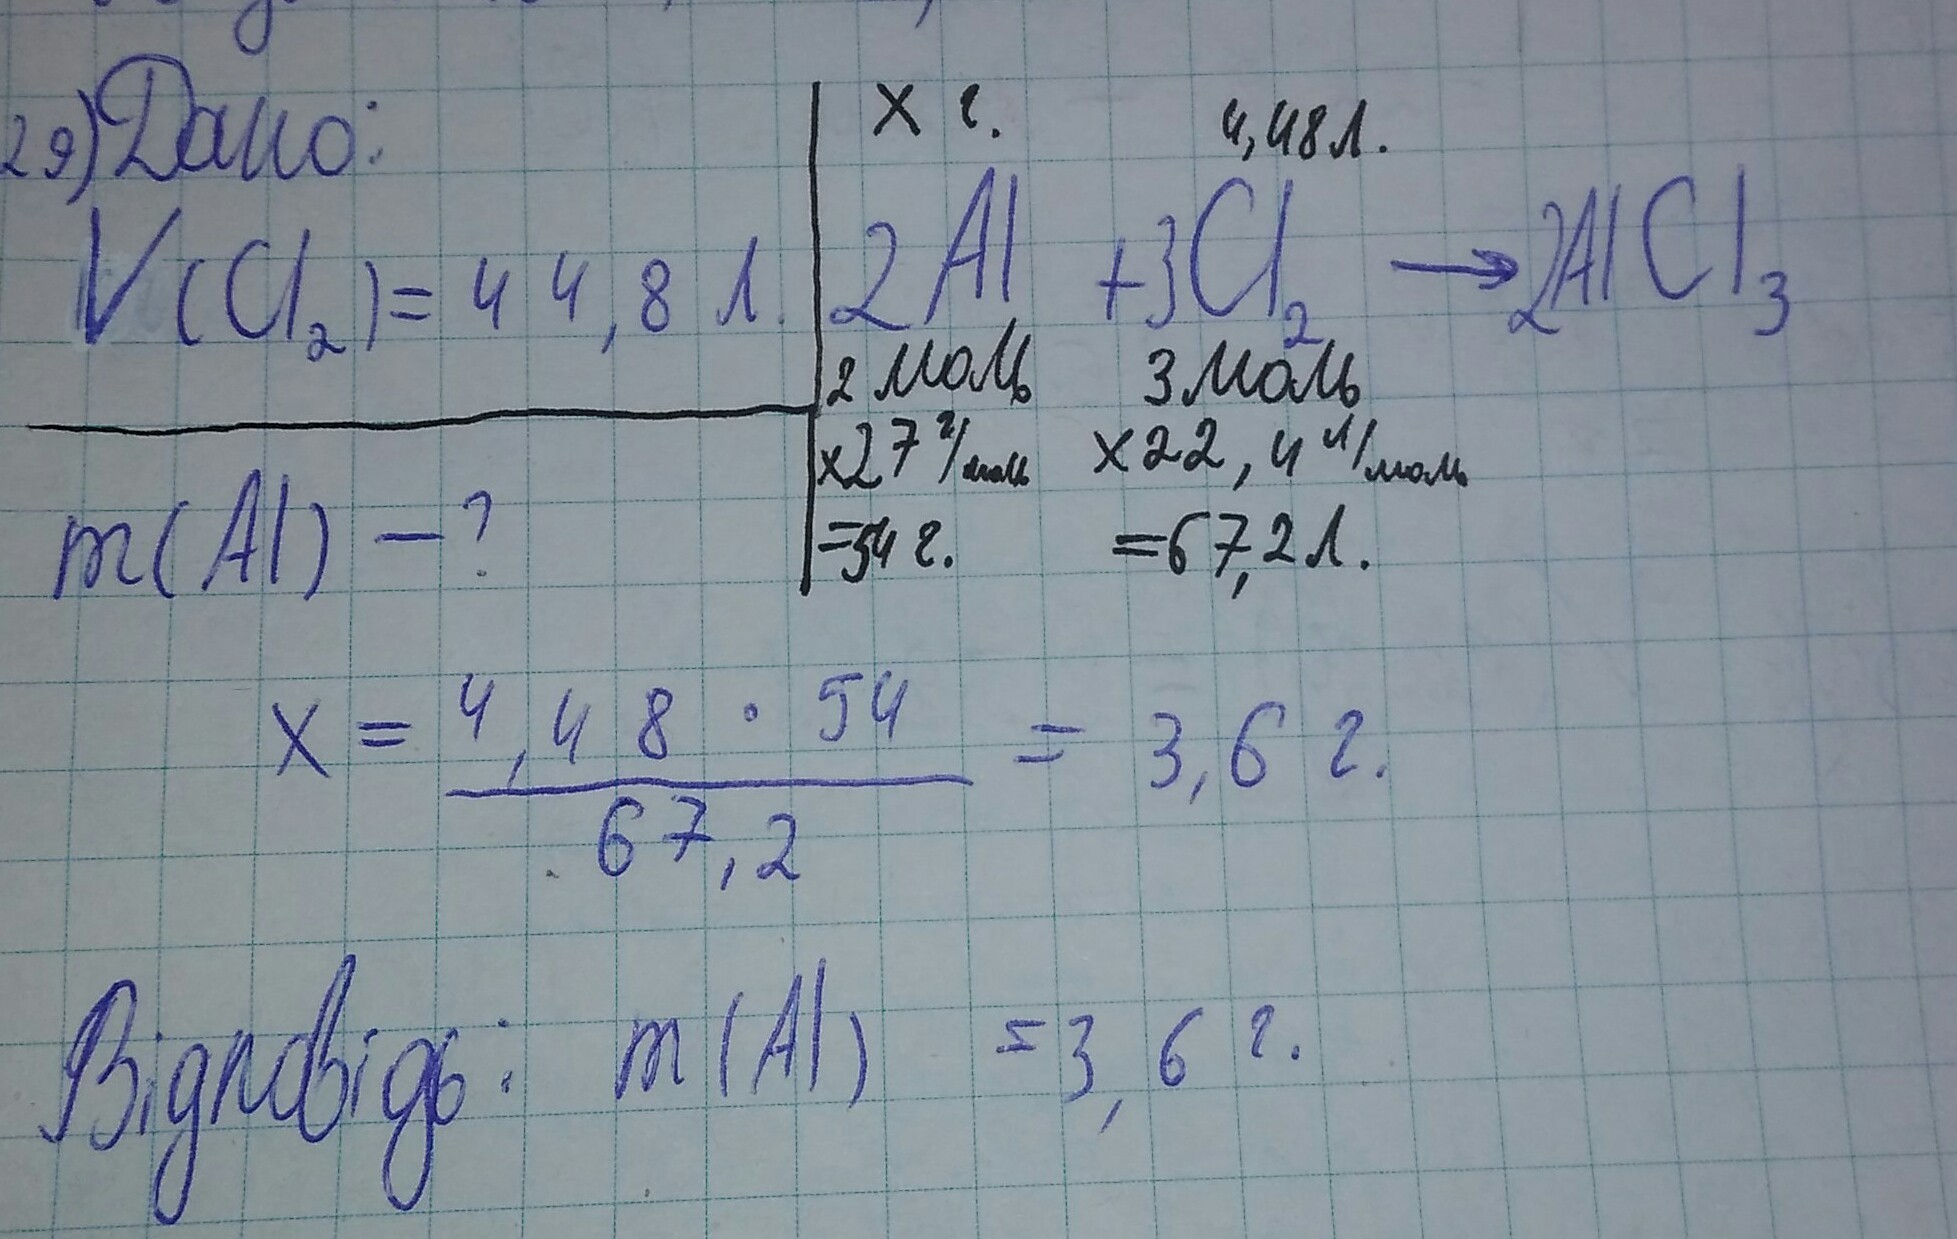 29) Дано:
V(Cl₂) = 44,8 л.
m(Al) – ?
x г. 4,48 л.
2Al + 3Cl₂ → 2AlCl₃
2 моль 3 моль
x27 г/моль x22,4 л/моль
=54 г. =67,2 л.
x = 4,48 · 54 / 67,2 = 3,6 г.
Відповідь: m(Al) = 3,6 г.